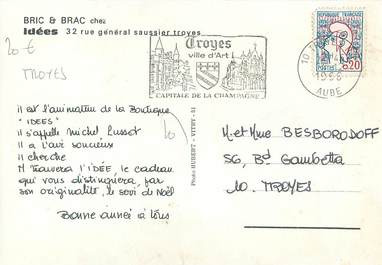 BRIC & BRAC chez
Idées 32 rue général saussier troyes
20 €
TROYES
Troyes
ville d'Art
CAPITALE DE LA CHAMPAGNE
10
1966
AUBE
REPUBLIQUE FRANÇAISE
0,20
POSTES
il est l'animateur de la Boutique
"IDEES"
il s'appelle michel Lusset
il a l'air soucieux
il cherche
Il trouvera l'IDÉE, le cadeau
qui vous distinguera, par
son originalité, le soir de Noël
Bonne année à tous
Photo HUBERT - VITRY - 51
10
M. et Mme BESBORODOFF
56, Bd Gambetta
10. TROYES